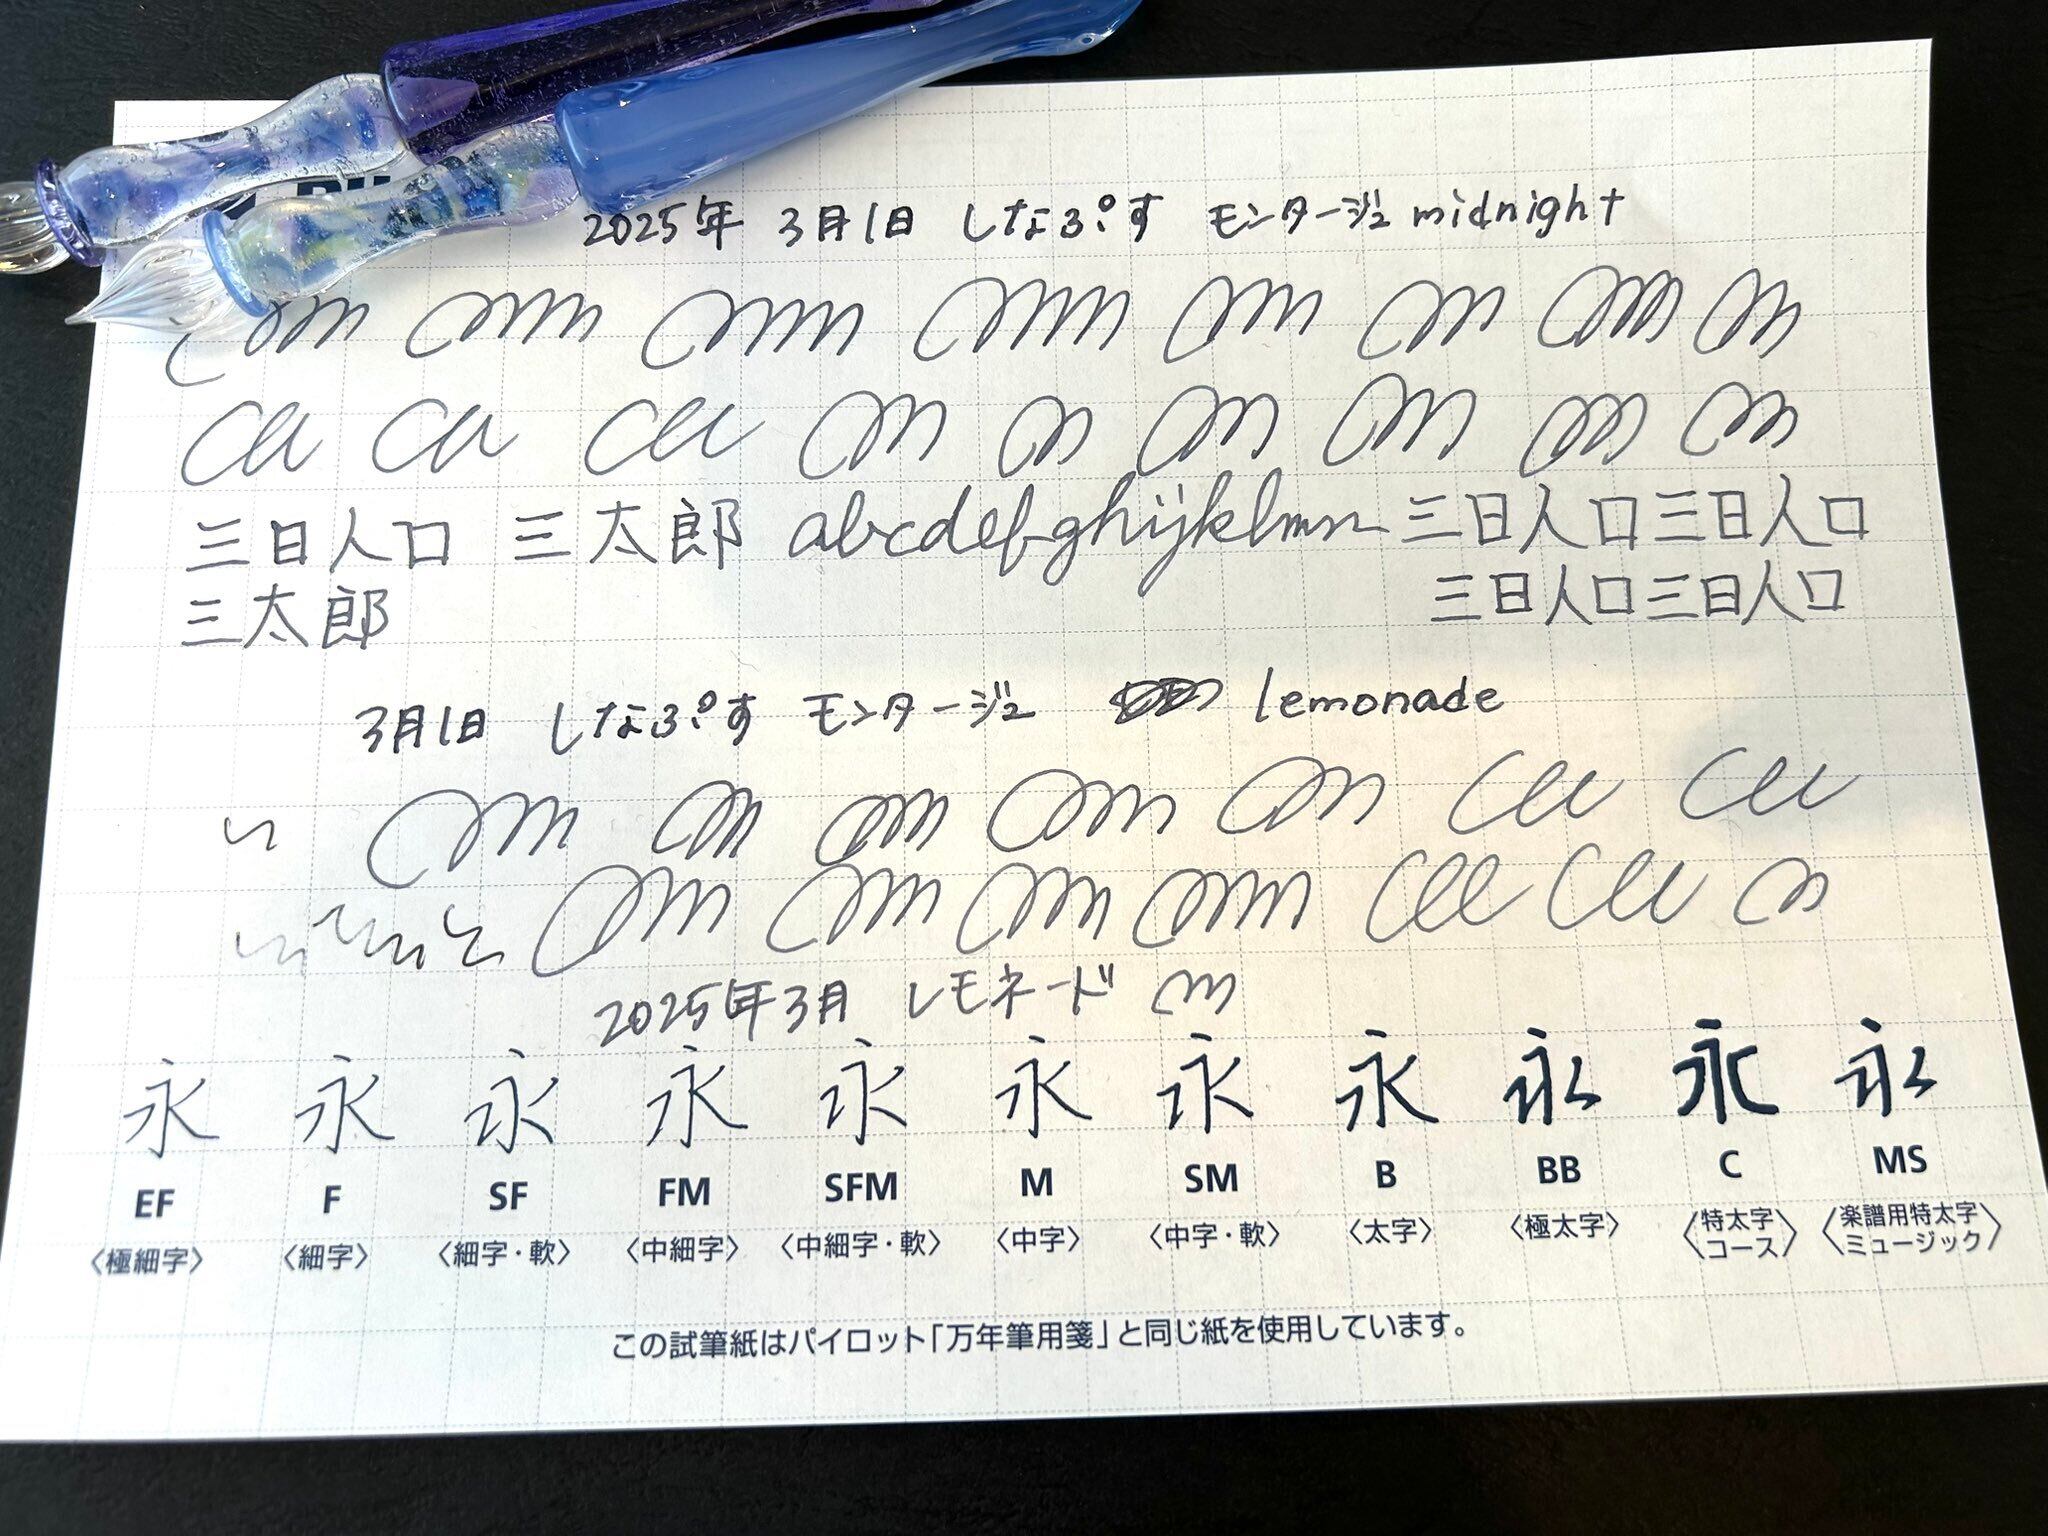 2025年 3月1日 しなぷす モンタージュ midnight
三日人口 三太郎 abcdefghijklmn 三日人口三日人口
三太郎 三日人口三日人口
3月1日 しなぷす モンタージュ lemonade
2025年3月 レモネード
永 永 永 永 永 永 永 永 永 永 永
EF F SF FM SFM M SM B BB C MS
〈極細字〉 〈細字〉 〈細字・軟〉 〈中細字〉 〈中細字・軟〉 〈中字〉 〈中字・軟〉 〈太字〉 〈極太字〉 〈特太字コース〉 〈楽譜用特太字ミュージック〉
この試筆紙はパイロット「万年筆用箋」と同じ紙を使用しています。